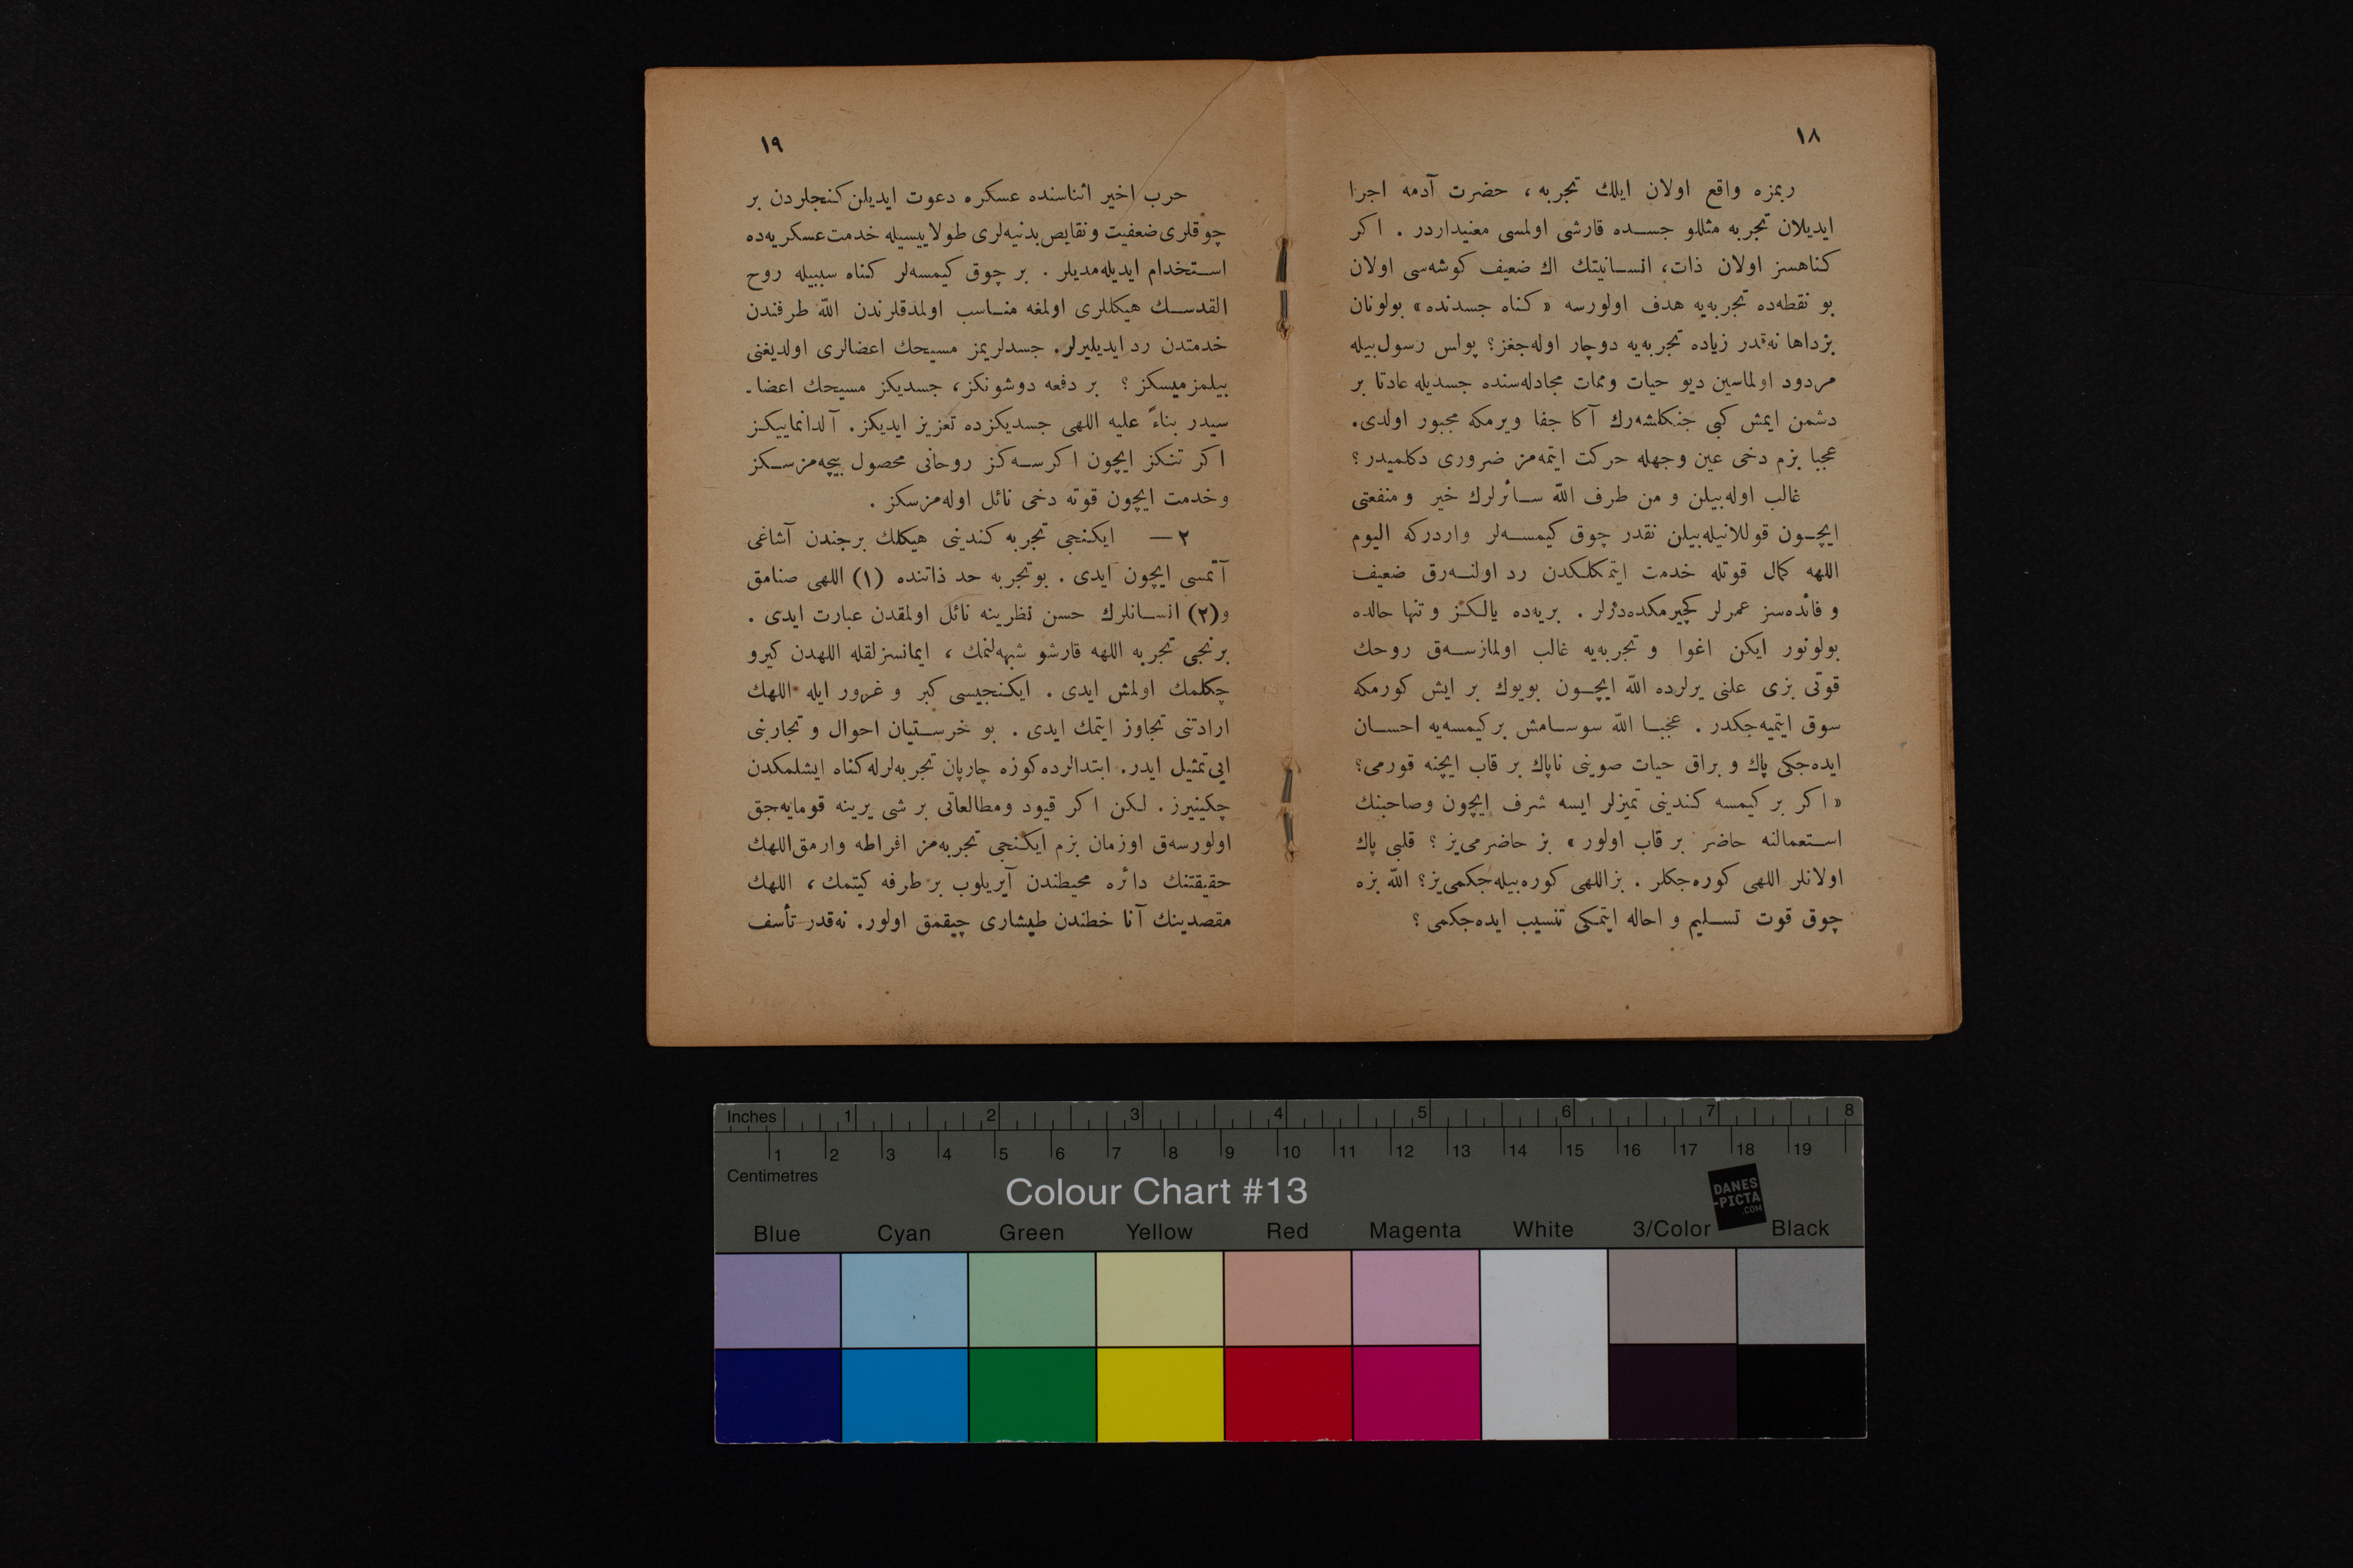 ١٨
ربمزه واقع اولان ایلك تجربه ، حضرت آدمه اجرا
ایدیلان تجربه مثللو جسده قارشی اولمسی معنیداردر . اكر
كناهسز اولان ذات، انسانیتك اك ضعیف كوشه‌سی اولان
بو نقطه‌ده تجربه‌یه هدف اولورسه « كناه جسدنده » بولونان
بزداها نه‌قدر زیاده تجربه‌یه دوچار اوله‌جغز؟ پولس رسول‌بیله
مردود اولماسین دیو حیات وممات مجادله‌سنده جسدیله عادتا بر
دشمن ایمش كبی جنكلشه‌رك آكا جفا ویرمكه مجبور اولدی.
عجبا بزم دخی عین وجهله حركت ایتمه‌مز ضروری دكلمیدر ؟
غالب اوله‌بیلن و من طرف الله سائرلرك خیر و منفعتی
ایچون قوللانیله‌بیلن نقدر چوق كیمسه‌لر واردركه الیوم
اللهه كمال قوتله خدمت ایتمكلكدن رد اولنه‌رق ضعیف
و فائده‌سز عمرلر كچیرمكده‌درلر . بریه‌ده یالكز و تنها حالده
بولونور ایكن اغوا و تجربه‌یه غالب اولمازسه‌ق روحك
قوتی بزی علنی یرلرده الله ایچون بویوك بر ایش كورمكه
سوق ایتمیه‌جكدر . عجبا الله سوسامش بركیمسه‌یه احسان
ایده‌جكی پاك و براق حیات صوینی ناپاك بر قاب ایچنه قورمی؟
« اكر بر كیمسه كندینی تمیزلر ایسه شرف ایچون وصاحبنك
استعمالنه حاضر بر قاب اولور » بز حاضرمی‌یز ؟ قلبی پاك
اولانلر اللهی كوره‌جكلر . بزاللهی كوره‌بیله‌جكمی‌یز؟ الله بزه
چوق قوت تسلیم و احاله ایتمكی تنسیب ایده‌جكمی ؟
١٩
حرب اخیر اثناسنده عسكره دعوت ایدیلن كنجلردن بر
چوقلری ضعفیت ونقایص‌بدنیه‌لری طولاییسیله خدمت‌عسكریه‌ده
استخدام ایدیله‌مدیلر . بر چوق كیمسه‌لر كناه سببیله روح
القدسك هیكللری اولمغه مناسب اولمدقلرندن الله طرفندن
خدمتدن رد ایدیلیرلر. جسدلریمز مسیحك اعضالری اولدیغنی
بیلمزمیسكز ؟ بر دفعه دوشونكز، جسدیكز مسیحك اعضا-
سیدر بناءً علیه اللهی جسدیكزده تعزیز ایدیكز. آلدانماییكز
اكر تنكز ایچون اكرسه‌كز روحانی محصول بیچه‌مزسكز
وخدمت ایچون قوته دخی نائل اوله‌مزسكز .
٢ — ایكنجی تجربه كندینی هیكلك برجندن آشاغی
آتمسی ایچون ایدی . بوتجربه حد ذاتنده (١) اللهی صنامق
و(٢) انسانلرك حسن نظرینه نائل اولمقدن عبارت ایدی .
برنجی تجربه اللهه قارشو شبهه‌لنمك ، ایمانسزلقله اللهدن كیرو
چكلمك اولمش ایدی . ایكنجیسی كبر و غرور ایله اللهك
ارادتنی تجاوز ایتمك ایدی . بو خرستیان احوال و تجاربنی
ایی‌تمثیل ایدر. ابتدالرده‌كوزه چارپان تجربه‌لرله‌كناه ایشلمكدن
چكینیرز. لكن اكر قیود ومطالعاتی بر شی یرینه قومایه‌جق
اولورسه‌ق اوزمان بزم ایكنجی تجربه‌مز افراطه وارمق‌اللهك
حقیقتنك دائره محیطندن آیریلوب بر طرفه كیتمك ، اللهك
مقصدینك آنا خطندن طیشاری چیقمق اولور. نه‌قدر تأسف
Inches 1 2 3 4 5 6 7 8
1 2 3 4 5 6 7 8 9 10 11 12 13 14 15 16 17 18 19
Centimetres
Colour Chart #13
DANES
-PICTA
.COM
Blue Cyan Green Yellow Red Magenta White 3/Color Black